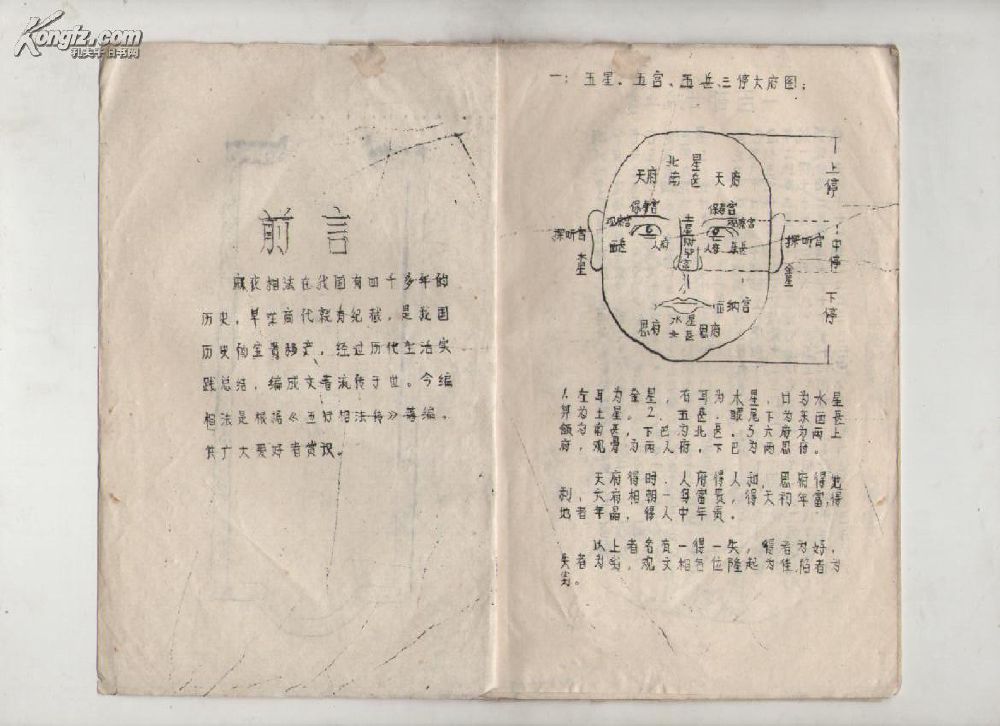 Kongfz.com
孔夫子旧书网
前言
麻衣相法在我国有四千多年的
历史，早在商代就有纪载，是我国
历史的宝贵遗产，经过历代生活实
践总结，编成文著流传于世。今编
相法是根据《五行相法传》等编，
供广大爱好者赏识。
一：五星、五宫、五岳、三停六府图；
北 星
天府 南 岳 天府
保寿宫 保寿宫
探听宫 西岳 人府 人府 探听宫
木星 金星
出纳宫
水 星
恩府 北 岳 恩府
上停
中停
下停
1.左耳为金星，右耳为木星，口为水星
鼻为土星。2.五岳．眼尾下为东西岳
额为南岳，下巴为北岳。3六府为两上
府，观骨为两人府，下巴为两恩府。
天府得时．人府得人和，恩府得地
利，六府相朝一身富贵，得天初年富，得
地者年晶，得人中年贵。
以上者各有一得一失，得者为好，
失者为劣，观文相各位隆起为佳，陷者为
劣。